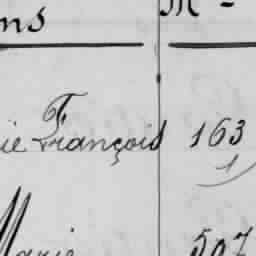 ns M
ie François 163
1
Marie 507